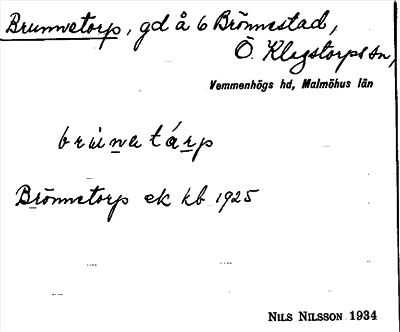 Brunnetorp, gd å 6 Brönnestad,
Ö. Klagstorps sn,
Vemmenhögs hd, Malmöhus län
brùnatárp
Brönnetorp ek kb 1925
NILS NILSSON 1934